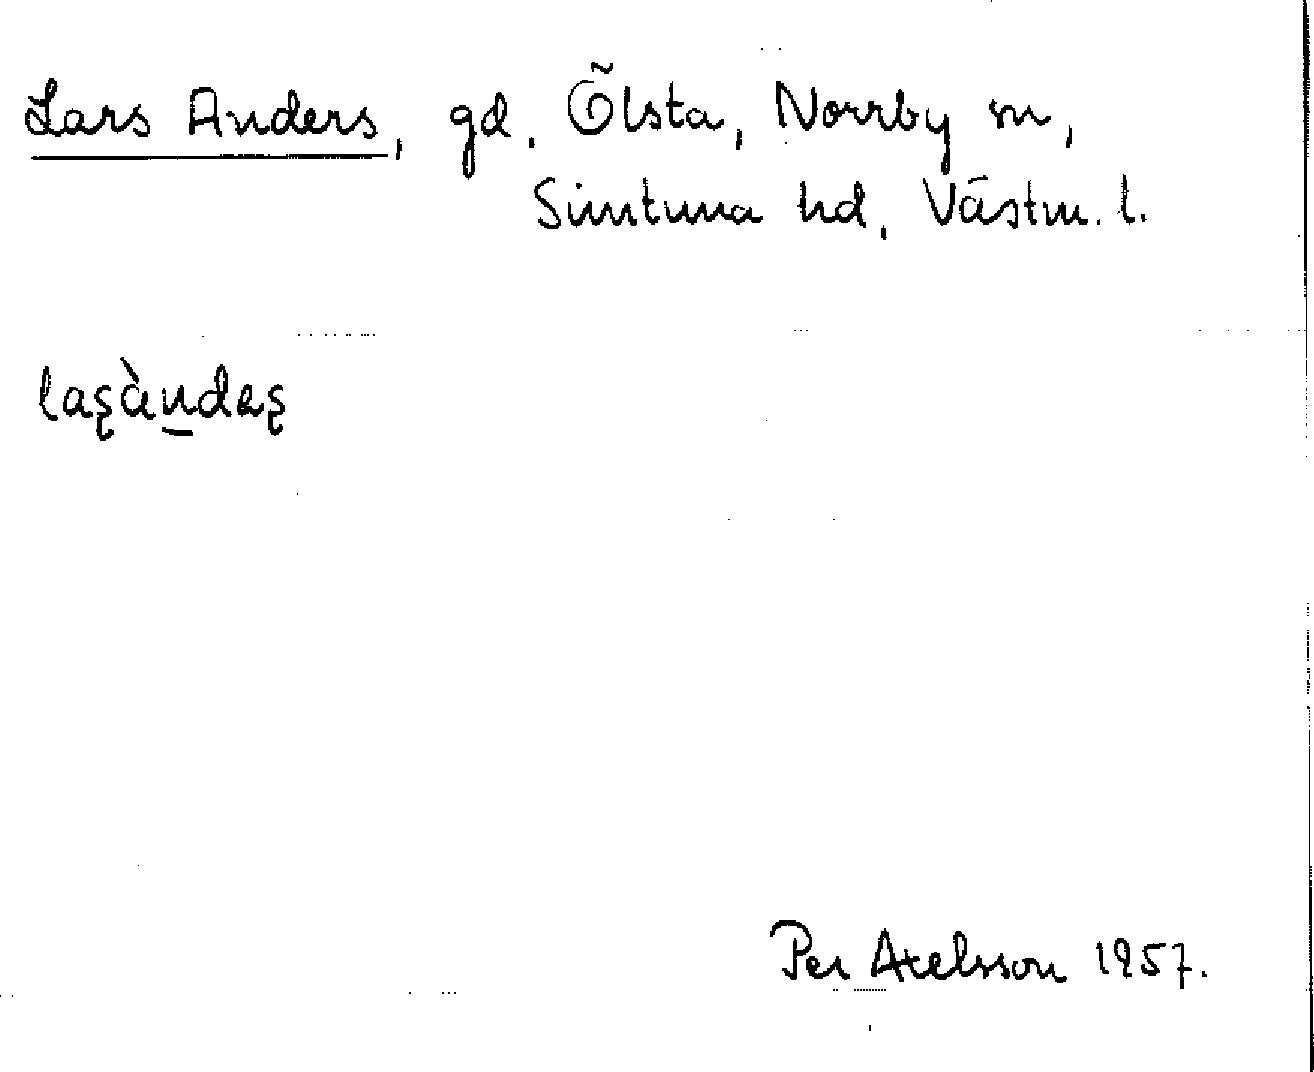 Lars Anders, gd, Ölsta, Norrby sn,
Simtuna hd, Västm. l.
laʂàn̲daʂ
Per Axelsson 1957.